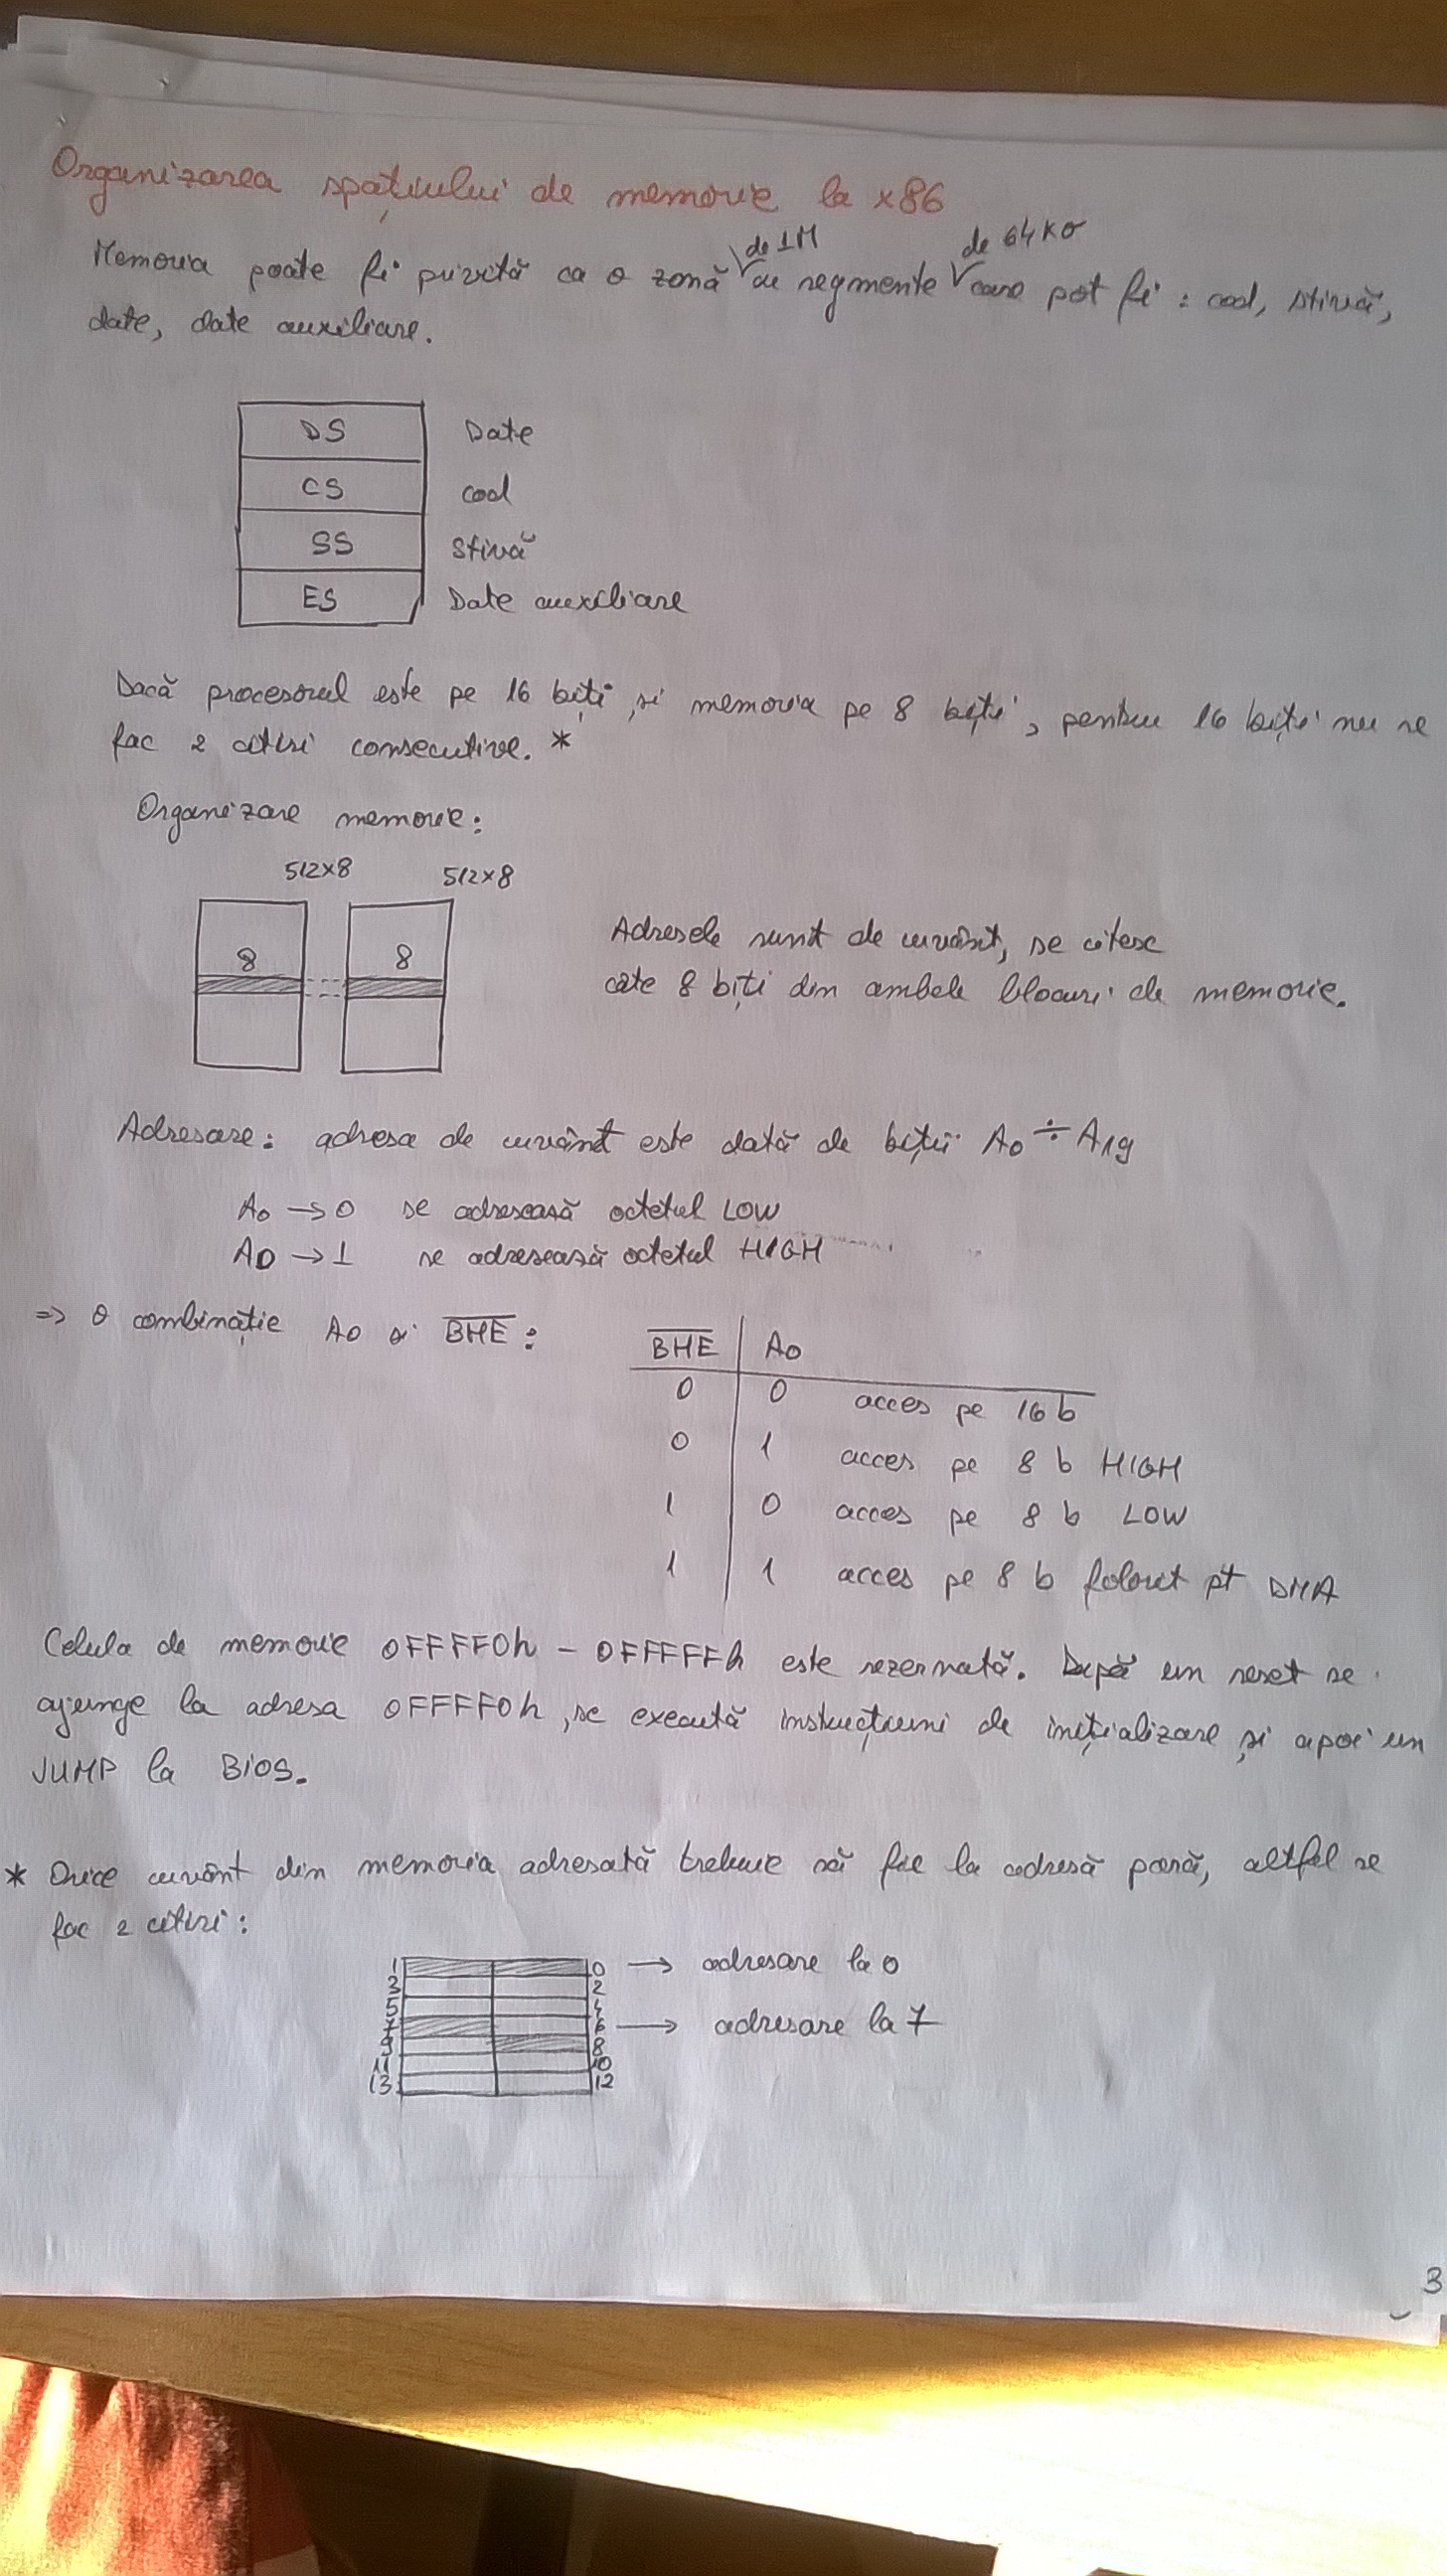 Organizarea spațiului de memorie la x86
de 1M de 64 KO
Memoria poate fi privită ca o zonă cu segmente care pot fi: cod, stivă,
date, date auxiliare.
DS Date
CS cod
SS Stivă
ES Date auxiliare
Dacă procesorul este pe 16 biți și memoria pe 8 biți, pentru 16 biți nu se
fac 2 citiri consecutive. *
Organizare memorie:
512x8 512x8
8 8
Adresele sunt de cuvânt, se citesc
câte 8 biți din ambele blocuri de memorie.
Adresare: adresa de cuvânt este dată de biții A0 ÷ A19
A0 → 0 se adresează octetul LOW
A0 → 1 se adresează octetul HIGH
=> O combinație A0 și B̅H̅E̅:
B̅H̅E̅ A0
0 0 acces pe 16 b
0 1 acces pe 8 b HIGH
1 0 acces pe 8 b LOW
1 1 acces pe 8 b folosit pt DMA
Celula de memorie 0FFFF0h – 0FFFFFh este rezervată. După un reset se
ajunge la adresa 0FFFF0h, se execută instrucțiuni de inițializare și apoi un
JUMP la BIOS.
* Orice cuvânt din memoria adresată trebuie să fie la adresă pară, altfel se
fac 2 citiri:
1 0 → adresare la 0
3 2
5 4
7 6 → adresare la 7
9 8
11 10
13 12
3